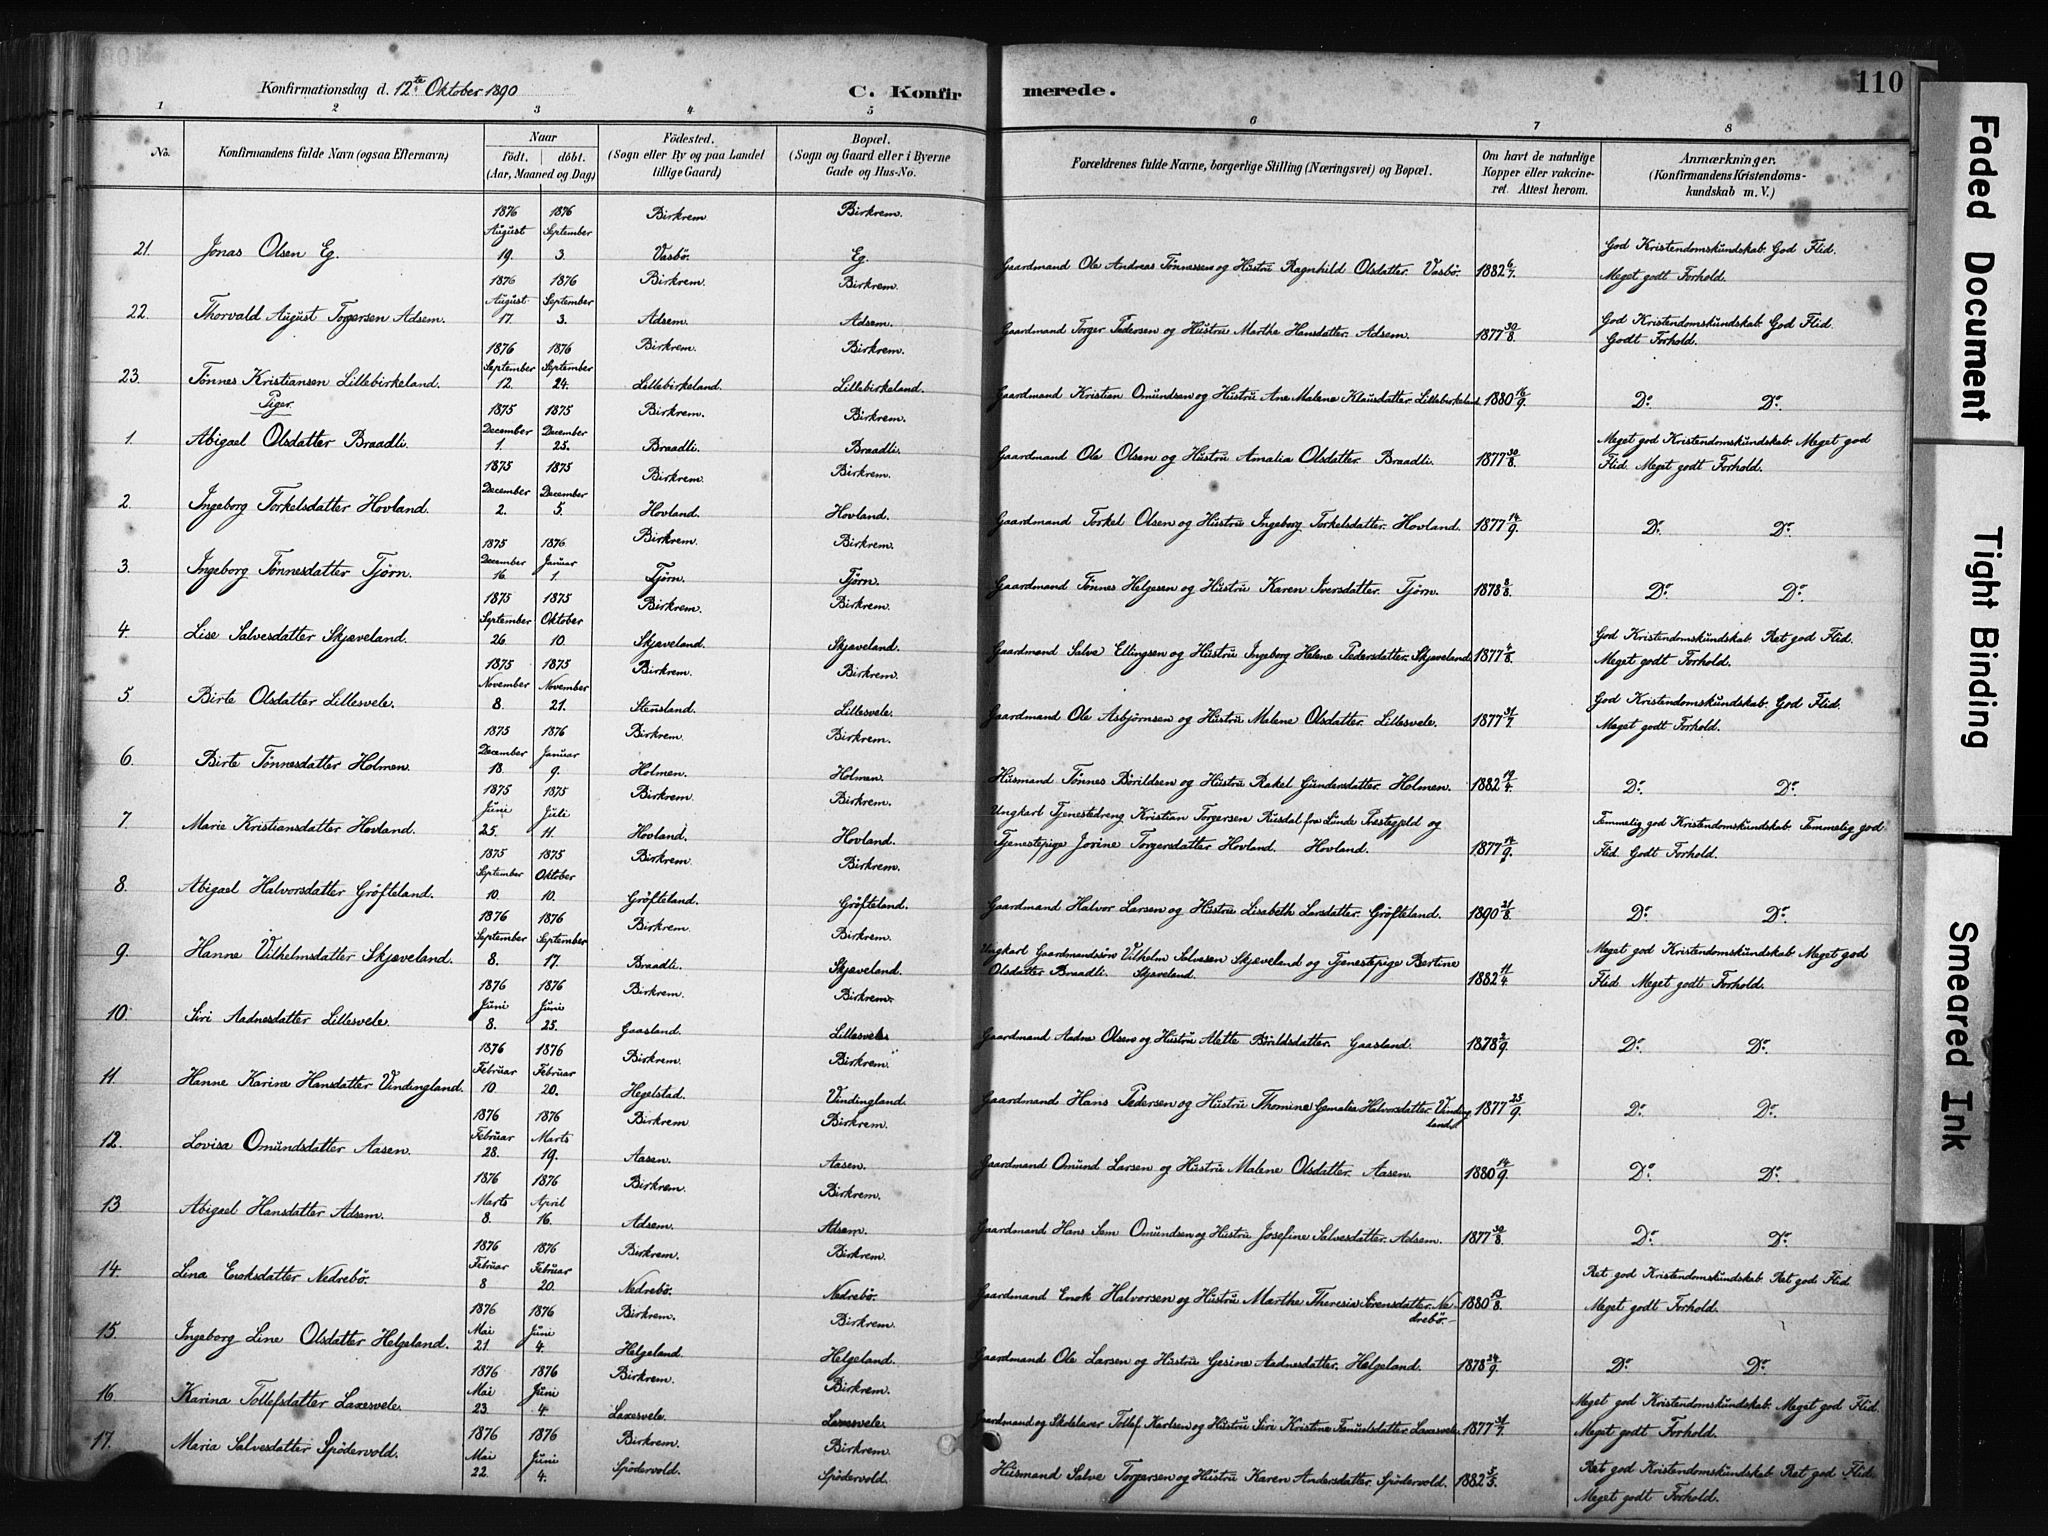 Konfirmationsdag d. 12te Oktober 1890 C. Konfir merede. 110
1 2 3 4 5 6 7 8
No. Konfirmandens fulde Navn (ogsaa Efternavn) Naar født. døbt. (Aar, Maaned og Dag) Fødested. (Sogn eller By og paa Landet tillige Gaard) Bopæl. (Sogn og Gaard eller i Byerne Gade og Hus-No. Forældrenes fulde Navne, borgerlige Stilling (Næringsvei) og Bopæl. Om havt de naturlige Kopper eller vakcineret. Attest herom. Anmærkninger. (Konfirmandens Kristendomskundskab m. V.)
1876 1876 Birkrem Birkrem.
August September
21. Jonas Olsen Eg. 19. 3. Vasbø. Eg. Gaardmand Ole Andreas Tønnessen og Hustru Ragnhild Olsdatter. Vasbø. 1882 6/7. God Kristendomskundskab. God Flid. Meget godt Forhold.
1876 1876 Birkrem. Birkrem.
August September
22. Thorvald August Torgersen Adsem. 17. 3. Adsem. Adsem. Gaardmand Torger Pedersen og Hustru Marthe Hansdatter. Adsem. 1877 30/8. God Kristendomskundskab. God Flid. Godt Forhold.
1876 1876 Birkrem. Birkrem.
September September
23. Tønnes Kristiansen Lillebirkeland. 12. 24. Lillebirkeland. Lillebirkeland. Gaardmand Kristian Omundsen og Hustru Ane Malene Klausdatter. Lillebirkeland 1880 16/9. Do. Do.
Piger.
1875 1875 Birkrem. Birkrem.
December December
1. Abigael Olsdatter Braadli. 1. 25. Braadli. Braadli. Gaardmand Ole Olsen og Hustru Amalia Olsdatter. Braadli. 1877 30/8. Meget god Kristendomskundskab. Meget god Flid. Meget godt Forhold.
1875 1875 Birkrem. Birkrem.
December December
2. Ingeborg Torkelsdatter Hovland. 2. 5. Hovland. Hovland. Gaardmand Torkel Olsen og Hustru Ingeborg Torkelsdatter. Hovland. 1877 14/9. Do. Do.
1875 1876 Birkrem. Birkrem.
December Januar
3. Ingeborg Tønnesdatter Tjørn. 16. 1. Tjørn. Tjørn. Gaardmand Tønnes Helgesen og Hustru Karen Iversdatter. Tjørn. 1878 8/8. Do. Do.
1875 1875 Birkrem. Birkrem.
September Oktober
4. Lise Salvesdatter Skjæveland. 26 10. Skjæveland. Skjæveland. Gaardmand Salve Ellingsen og Hustru Ingeborg Helene Pedersdatter. Skjæveland. 1877 4/8. God Kristendomskundskab. Ret god Flid. Meget godt Forhold.
1875 1875 Birkrem. Birkrem.
November November
5. Birte Olsdatter Lillesvele. 8. 21. Stensland. Lillesvele. Gaardmand Ole Asbjørnsen og Hustru Malene Olsdatter. Lillesvele. 1877 31/7. God Kristendomskundskab. God Flid. Meget godt Forhold.
1875 1876 Birkrem. Birkrem.
December Januar
6. Birte Tønnesdatter Holmen. 18. 9. Holmen. Holmen. Husmand Tønnes Børildsen og Hustru Rakel Gundersdatter. Holmen. 1882 19/4. Do. Do.
1875 1875 Birkrem. Birkrem.
Juni Juli
7. Marie Kristiansdatter Hovland. 25. 11. Hovland. Hovland. Ungkarl Tjenestedreng Kristian Torgersen Rusdal fra Lunde Præstegjeld og Tjenestepige Jorine Torgersdatter Hovland. Hovland. 1877 14/9. Temmelig god Kristendomskundskab. Temmelig god Flid. Godt Forhold.
1875 1875 Birkrem. Birkrem.
September Oktober
8. Abigael Halvorsdatter Grøfteland. 10. 10. Grøfteland. Grøfteland. Gaardmand Halvor Larsen og Hustru Lisabeth Larsdatter. Grøfteland. 1890 31/8. Do. Do.
1876 1876 Birkrem. Birkrem.
September September
9. Hanne Vilhelmsdatter Skjæveland. 8. 17. Braadli. Skjæveland. Ungkarl Gaardmandssøn Vilhelm Salvesen Skjæveland og Tjenestepige Bertine Olsdatter Braadli. Skjæveland. 1882 11/4. Meget god Kristendomskundskab. Meget god Flid. Meget godt Forhold.
1876 1876 Birkrem. Birkrem.
Juni Juni
10. Siri Aadnesdatter Lillesvele. 8. 25. Gaasland. Lillesvele. Gaardmand Aadne Olsen og Hustru Alette Børildsdatter. Gaasland. 1878 2/9. Do. Do.
1876 1876 Birkrem. Birkrem.
Februar Februar
11. Hanne Karine Hansdatter Vindingland. 10. 20. Hegelstad. Vindingland. Gaardmand Hans Pedersen og Hustru Thomine Gemalia Halvorsdatter. Vinding land. 1877 25/9. Do. Do.
1876 1876 Birkrem Birkrem.
Februar Marts
12. Lovisa Omundsdatter Aasen. 28. 19. Aasen. Aasen. Gaardmand Omund Larsen og Hustru Malene Olsdatter. Aasen. 1880 14/9. Do. Do.
1876 1876 Birkrem. Birkrem.
Marts April
13. Abigael Hansdatter Adsem. 8. 16. Adsem. Adsem. Gaardmand Hans Sem Omundsen og Hustru Josefine Salvesdatter. Adsem. 1877 30/8. Do. Do.
1876 1876 Birkrem. Birkrem.
Februar Februar
14. Lina Enoksdatter Nedrebø. 8 20. Nedrebø. Nedrebø. Gaardmand Enok Halvorsen og Hustru Marthe Theresia Sørensdatter. Ne drebø. 1880 13/8. Ret god Kristendomskundskab. Ret god Flid. Meget godt Forhold.
1876 1876 Birkrem. Birkrem.
Mai Juni
15. Ingeborg Line Olsdatter Helgeland. 21 4. Helgeland. Helgeland. Gaardmand Ole Larsen og Hustru Gesine Aadnesdatter. Helgeland. 1878 24/9. Do. Do.
1876 1876 Birkrem. Birkrem.
Mai Juni
16. Karina Tollefsdatter Laxesvele. 23. 4. Laxesvele. Laxesvele. Gaardmand og Skolelærer Tollef Karlsen og Hustru Siri Kristine Samuelsdatter. Laxesvele. 1877 31/7. Meget god Kristendomskundskab. Meget god Flid. Meget godt Forhold.
1876 1876 Birkrem. Birkrem.
Mai Juni
17. Maria Salvesdatter Spødervold. 22. 4. Spødervold. Spødervold. Husmand Salve Torgersen og Hustru Karen Andersdatter. Spødervold. 1882 5/5. Ret god Kristendomskundskab. Ret god Flid. Meget godt Forhold.
Faded Document
Tight Binding
Smeared Ink